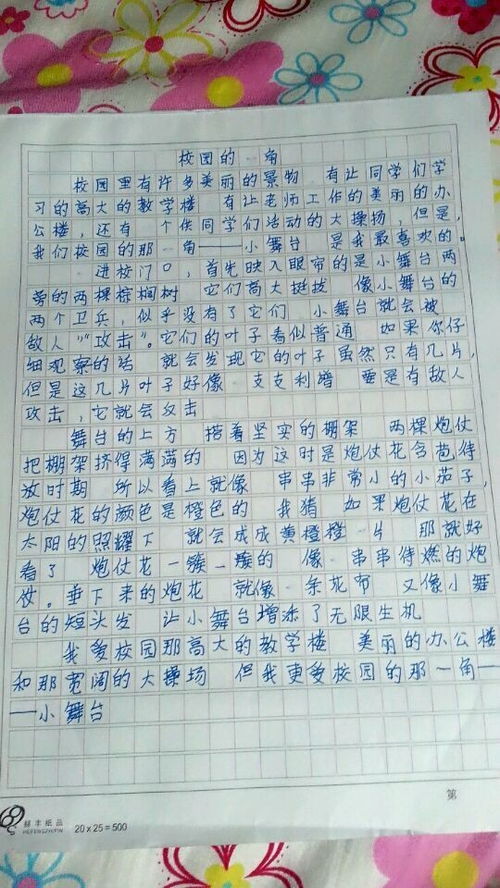 校园的一角
校园里有许多美丽的景物 有让同学们学
习的高大的教学楼 有让老师工作的美丽的办
公楼，还有一个供同学们活动的大操场，但是，
我们校园的那一角——小舞台 是我最喜欢的。
一进校门口，首先映入眼帘的是小舞台两
旁的两棵棕榈树 它们高大挺拔 像小舞台的
两个卫兵，似乎没有了它们 小舞台就会被
敌人“攻击”。它们的叶子看似普通 如果你仔
细观察的话 就会发现它的叶子虽然只有几片，
但是这几片叶子好像一支支利 要是有敌人
攻击，它就会攻击
舞台的上方 搭着坚实的棚架 两棵炮仗
把棚架挤得满满的 因为这时是炮仗花含苞待
放时期 所以看上就像一串串非常小的小茄子，
炮仗花的颜色是橙色的 我猜 如果炮仗花在
太阳的照耀下 就会成成黄橙橙一片 那就好
看了 炮仗花一簇一簇的 像一串串待燃的炮
仗。垂下来的炮花 就像一条花布 又像小舞
台的短头发 让小舞台增添了无限生机
我爱校园那高大的教学楼 美丽的办公楼
和那宽阔的大操场 但我更爱校园的那一角—
—小舞台
第
20 x 25 = 500